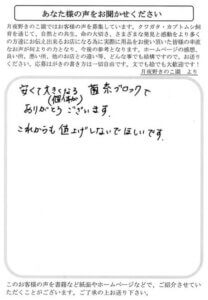 あなた様の声をお聞かせください
月夜野きのこ園ではお客様の声を募集しています。クワガタ・カブトムシ飼
育を通じて、自然との共生、命の大切さ、さまざまな発見と感動をより多く
の方達にお伝え出来るお店になる為に実際に用品をお使い頂いた皆様の率直
なお声が何よりの力となり、今後の参考となります。ホームページの感想、
良い所、悪い所、他のお店との違い等、どんな事でも結構ですので、お送り
ください。応募は下記の書き方は一切自由です。文でも絵でも大歓迎です！
月夜野きのこ園 より
安くて大きくなる 菌糸ブロックで
(個体が)
ありがとうございます。
これからも値上げしないでほしいです。
このお客様の声を書籍など紙面やホームページなどで、ご紹介させていた
だくことがございます。ご了承の上お送り下さい。